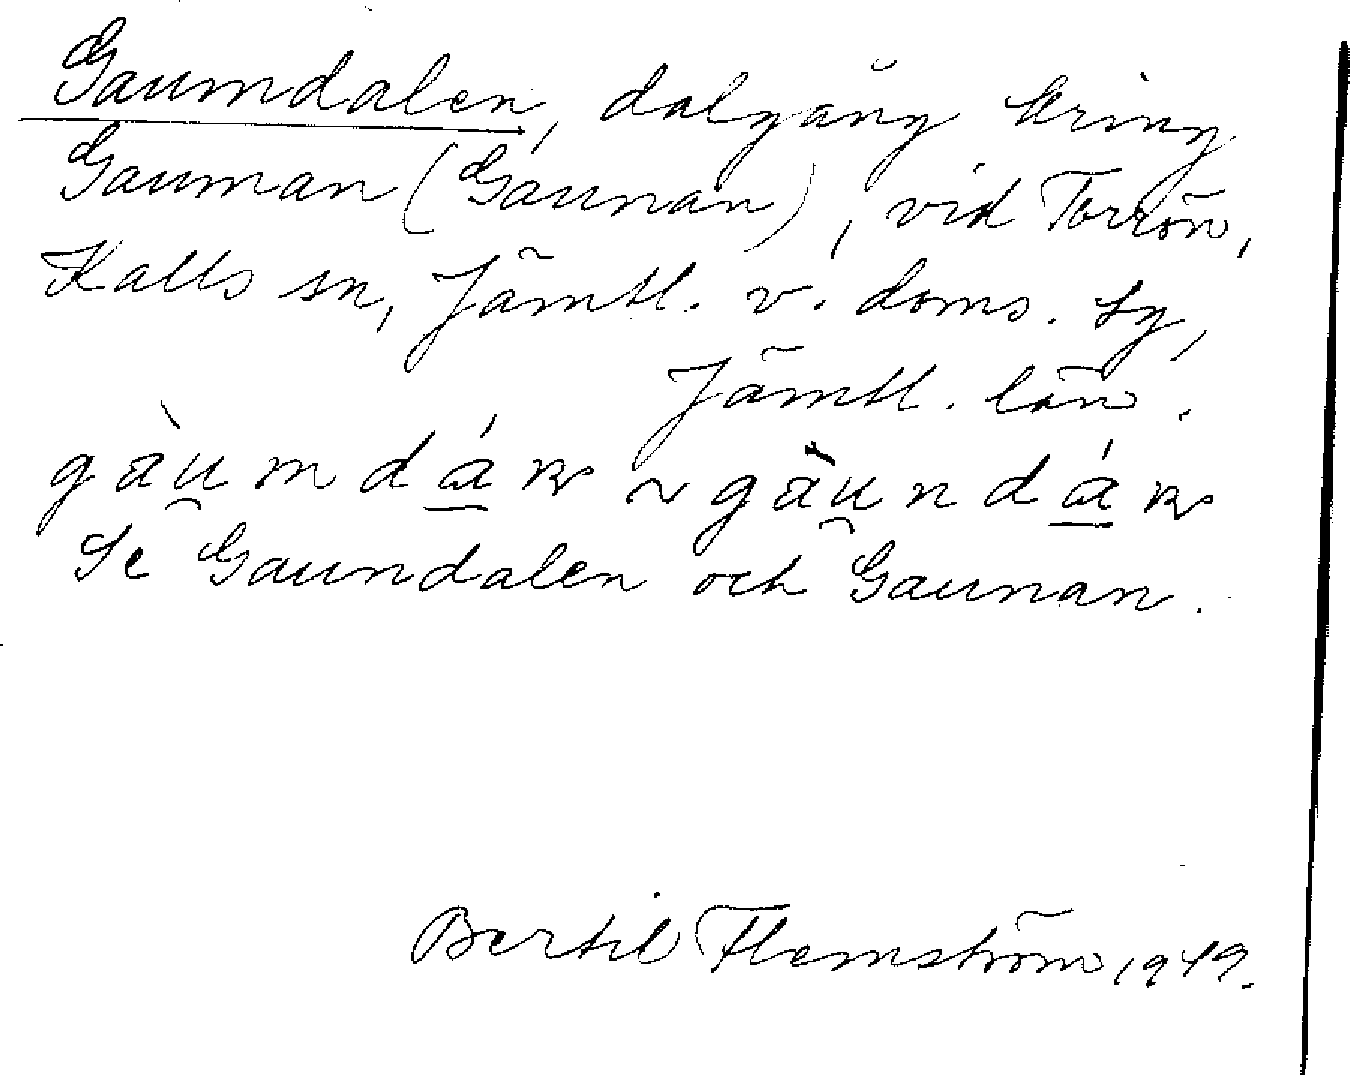 Gaumdalen, dalgång kring
Gauman (Gaunan), vid Torrön,
Kalls sn, Jämtl. v. doms. sg,
Jämtl. län.
gàu̯mdá̠ṇ ~ gàu̯ndá̠ṇ
Se Gaundalen och Gaunan.
Bertil Flemström 1949.